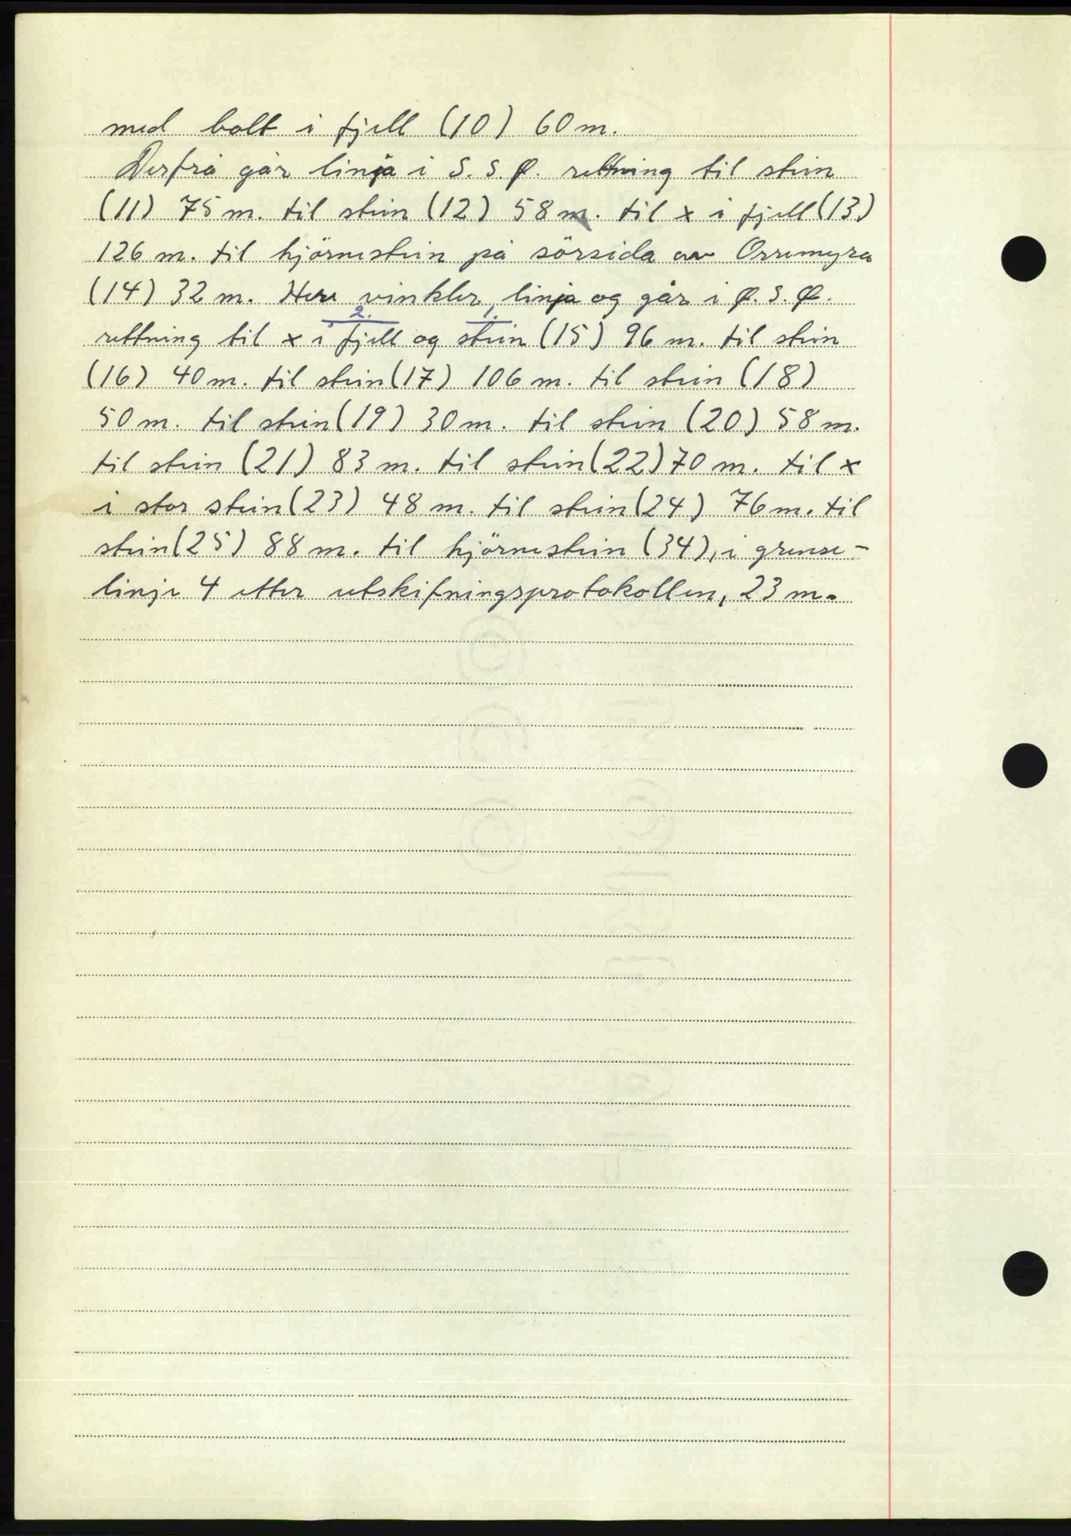 med bolt i fjell (10) 60 m.
Derfra går linja i S. S. Ø. rettning til stein
(11) 75 m. til stein (12) 58 m. til x i fjell (13)
126 m. til hjörnestein på sörsida av Orremyra
(14) 32 m. Her vinkler linja og går i Ø. S. Ø.
2. 1.
rettning til x i fjell og stein (15) 96 m. til stein
(16) 40 m. til stein (17) 106 m. til stein (18)
50 m. til stein (19) 30 m. til stein (20) 58 m.
til stein (21) 83 m. til stein (22) 70 m. til x
i stor stein (23) 48 m. til stein (24) 76 m. til
stein (25) 88 m. til hjörnestein (34), i grense-
linje 4 etter utskifningsprotokollen, 23 m.